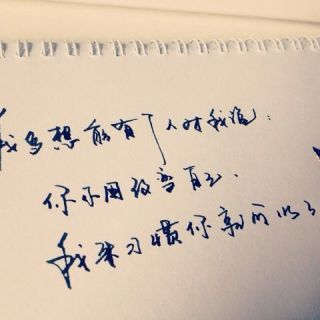 我多想能有个人对我说：
你不用改变自己.
我来习惯你就可以了